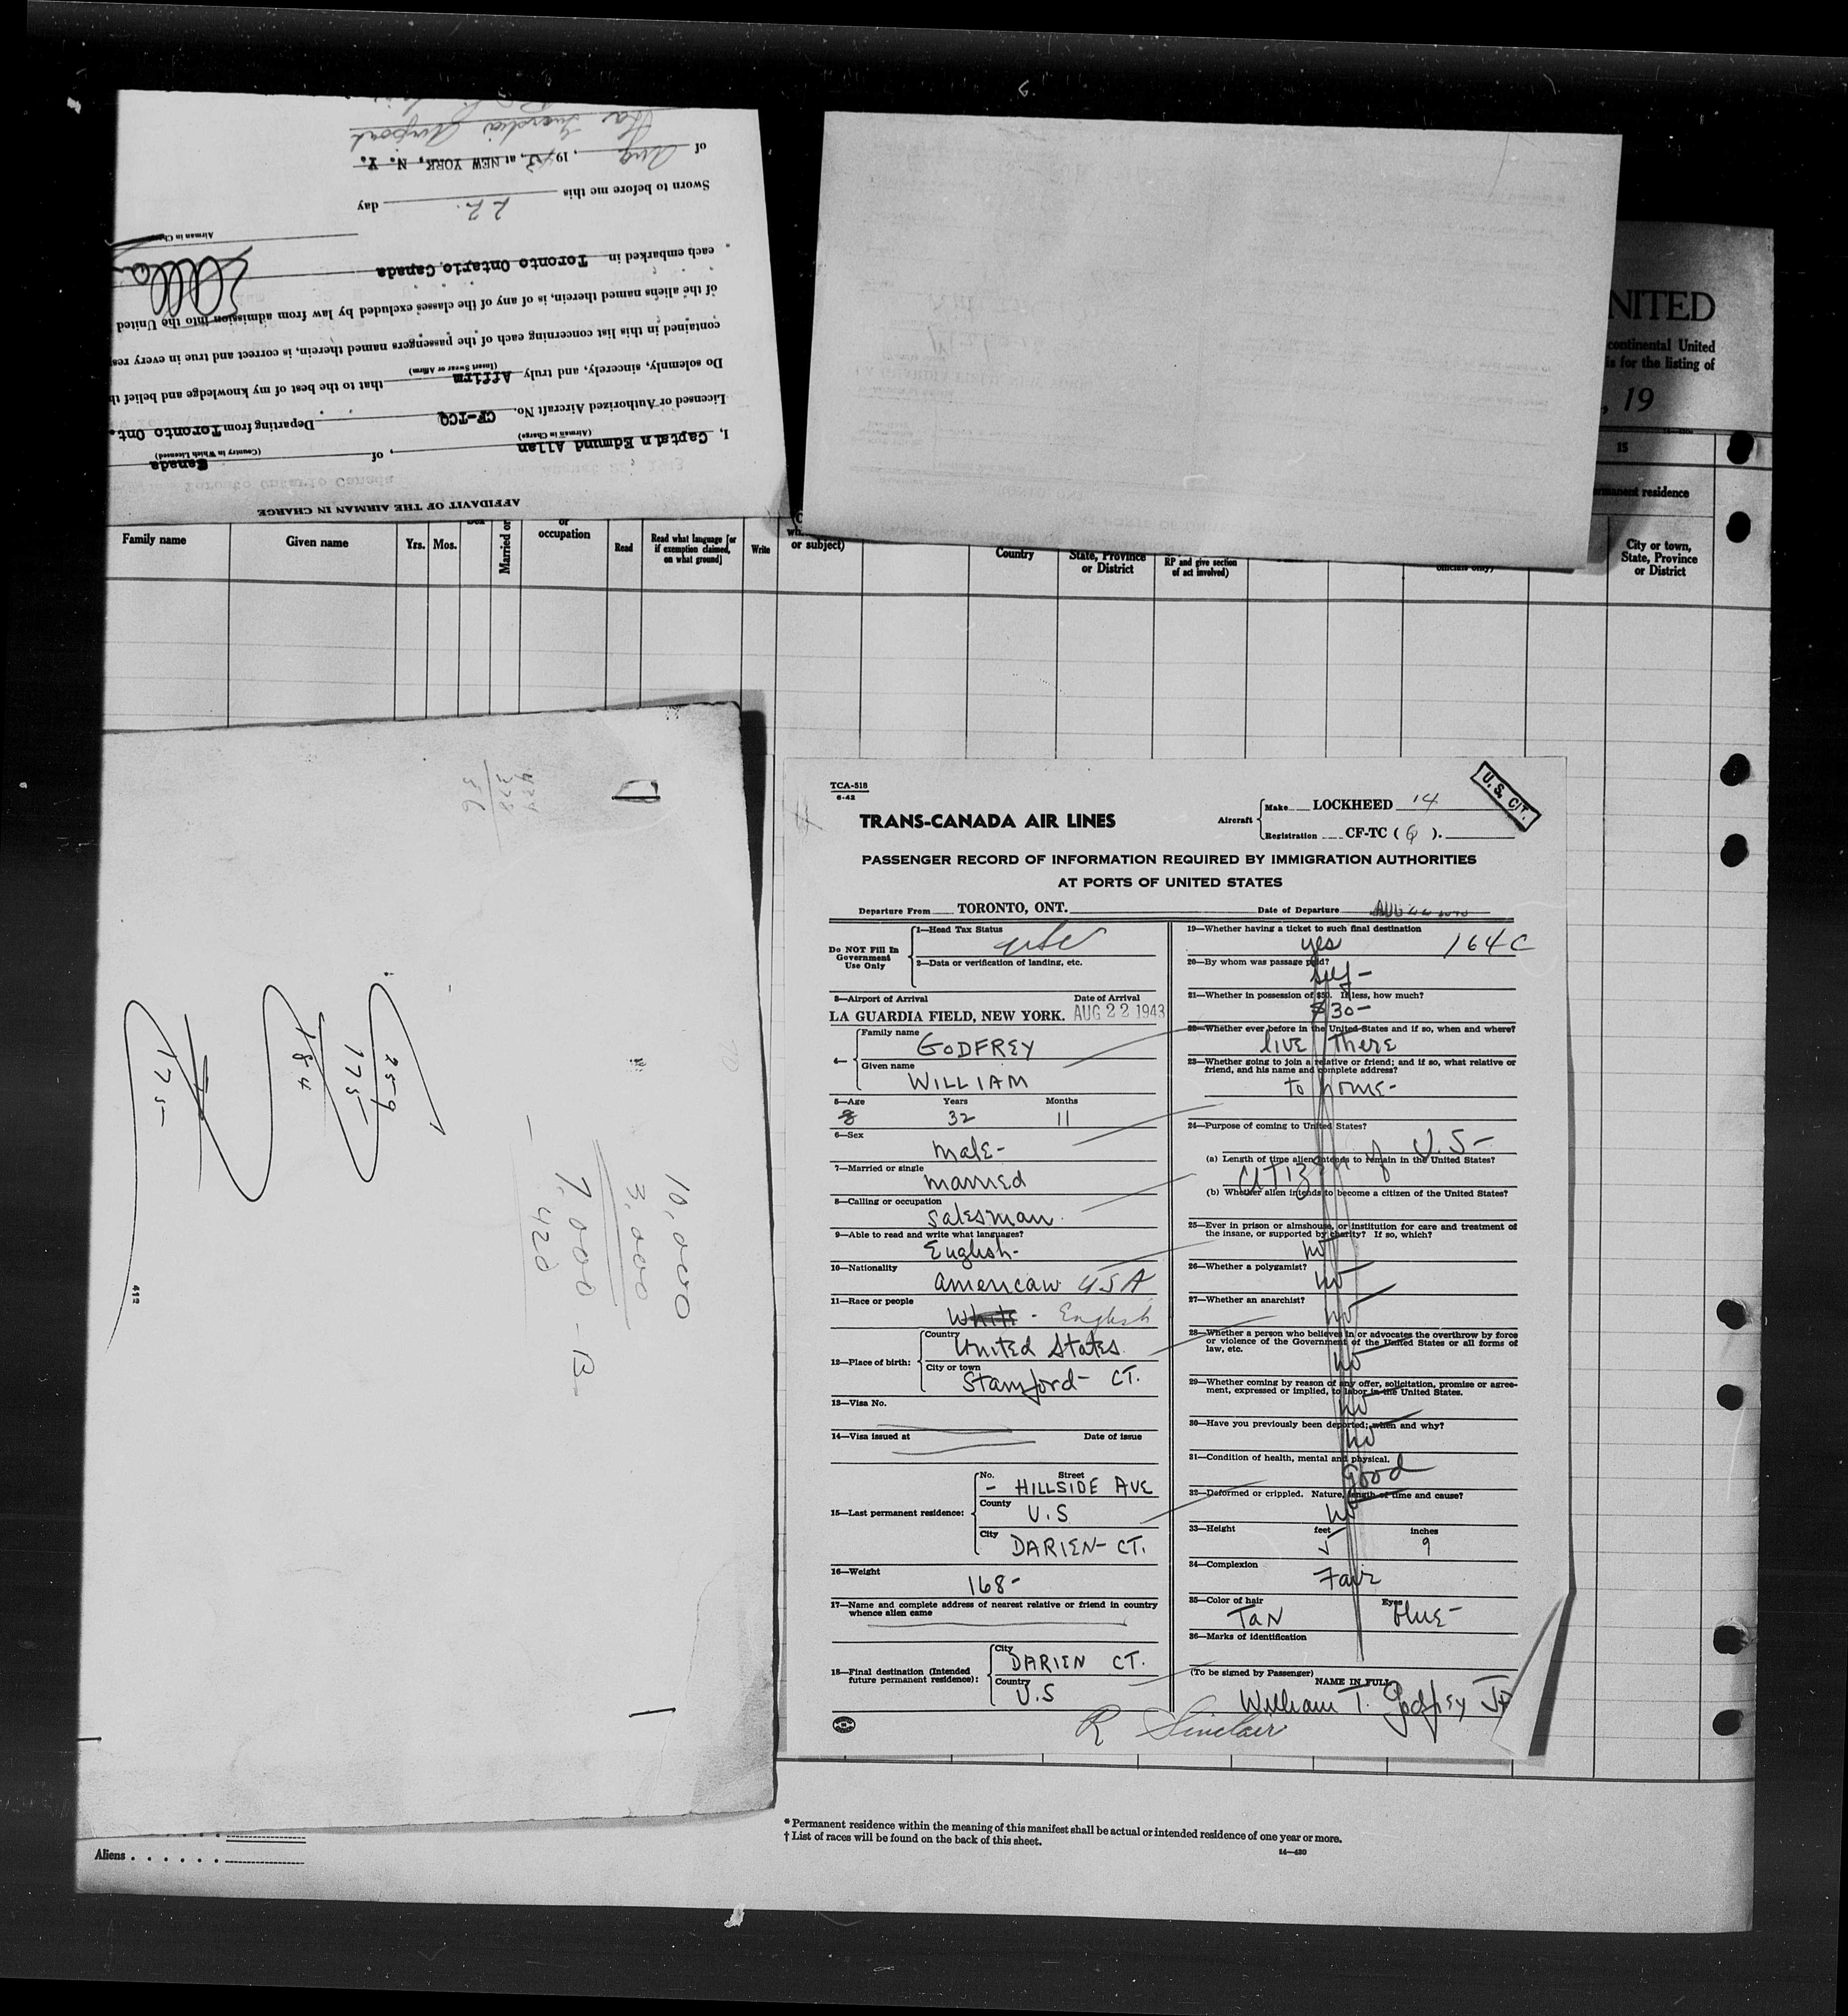 AFFIDAVIT OF THE AIRMAN IN CHARGE
I, Captain Edmund Allan, of Canada
(Airman in Charge) (Country in Which Licensed)
Licensed or Authorized Aircraft No. CF-TCQ Departing from Toronto Ont.
Do solemnly, sincerely, and truly Affirm that to the best of my knowledge and belief
(Insert Swear or Affirm)
contained in this list concerning each of the passengers named therein, is correct and true in every
of the aliens named therein, is of any of the classes excluded by law from admission into the United
each embarked in Toronto Ontario Canada
Airman in
Sworn to before me this 22 day
of Aug, 1943, at NEW YORK, N. Y.
La Guardia Airport
NITED
continental United
is for the listing of
, 19
15
residence
Family name Given name Yrs. Mos. Married or or occupation Read Read what language [or if exemption claimed, on what ground] Write or subject) Country State, Province or District RP and give section of act involved) City or town, State, Province or District
10,000
3,000
7,000 - B
420
259
175
184
175
412
TCA-518
6-42
TRANS-CANADA AIR LINES
Aircraft Make LOCKHEED 14
Registration CF-TC ( Q ).
U. S. CIT.
PASSENGER RECORD OF INFORMATION REQUIRED BY IMMIGRATION AUTHORITIES
AT PORTS OF UNITED STATES
Departure From TORONTO, ONT. Date of Departure AUG 22 1943
Do NOT Fill In Government Use Only
1—Head Tax Status
2—Data or verification of landing, etc.
3—Airport of Arrival Date of Arrival
LA GUARDIA FIELD, NEW YORK. AUG 22 1943
4— Family name
GODFREY
Given name
WILLIAM
5—Age Years Months
32 11
6—Sex
male-
7—Married or single
married
8—Calling or occupation
salesman.
9—Able to read and write what languages?
English-
10—Nationality
american USA
11—Race or people
White - English
12—Place of birth: Country
United States
City or town
Stamford- CT.
13—Visa No.
14—Visa issued at Date of issue
15—Last permanent residence: No. Street
- HILLSIDE AVE
County
U.S
City
DARIEN- CT.
16—Weight
168-
17—Name and complete address of nearest relative or friend in country
whence alien came
18—Final destination (Intended future permanent residence): City
DARIEN CT.
Country
U.S
19—Whether having a ticket to such final destination
yes 164C
20—By whom was passage paid?
self-
21—Whether in possession of $50. If less, how much?
$30-
22—Whether ever before in the United States and if so, when and where?
live There
23—Whether going to join a relative or friend; and if so, what relative or
friend, and his name and complete address?
to home-
24—Purpose of coming to United States?
(a) Length of time alien intends to remain in the United States?
Citizen of U.S-
(b) Whether alien intends to become a citizen of the United States?
25—Ever in prison or almshouse, or institution for care and treatment of
the insane, or supported by charity? If so, which?
no
26—Whether a polygamist?
no
27—Whether an anarchist?
no
28—Whether a person who believes in or advocates the overthrow by force
or violence of the Government of the United States or all forms of
law, etc.
no
29—Whether coming by reason of any offer, solicitation, promise or agree-
ment, expressed or implied, to labor in the United States.
no
30—Have you previously been deported; when and why?
no
31—Condition of health, mental and physical.
Good
32—Deformed or crippled. Nature, length of time and cause?
no
33—Height feet inches
5 9
34—Complexion
Fair
35—Color of hair Eyes
TaN blue-
36—Marks of identification
(To be signed by Passenger)
NAME IN FULL
William T. Godfrey Jr
R Sinclair
* Permanent residence within the meaning of this manifest shall be actual or intended residence of one year or more.
† List of races will be found on the back of this sheet.
14—430
Aliens